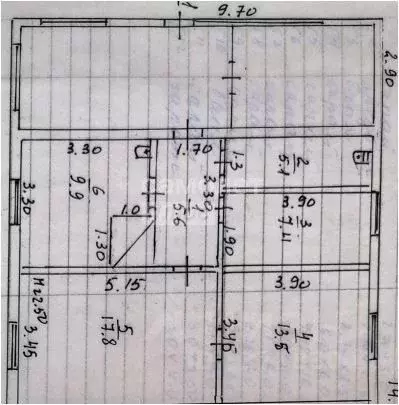 1
9.70
2.90
3.30
1.70
1.3
2
5.1
6
9.9
3.30
3.30
1
5.6
3.90
3
7.4
1.0
1.30
1.90
5.15
3.90
h=2.50
3.45
5
17.8
3.45
4
13.5
14.